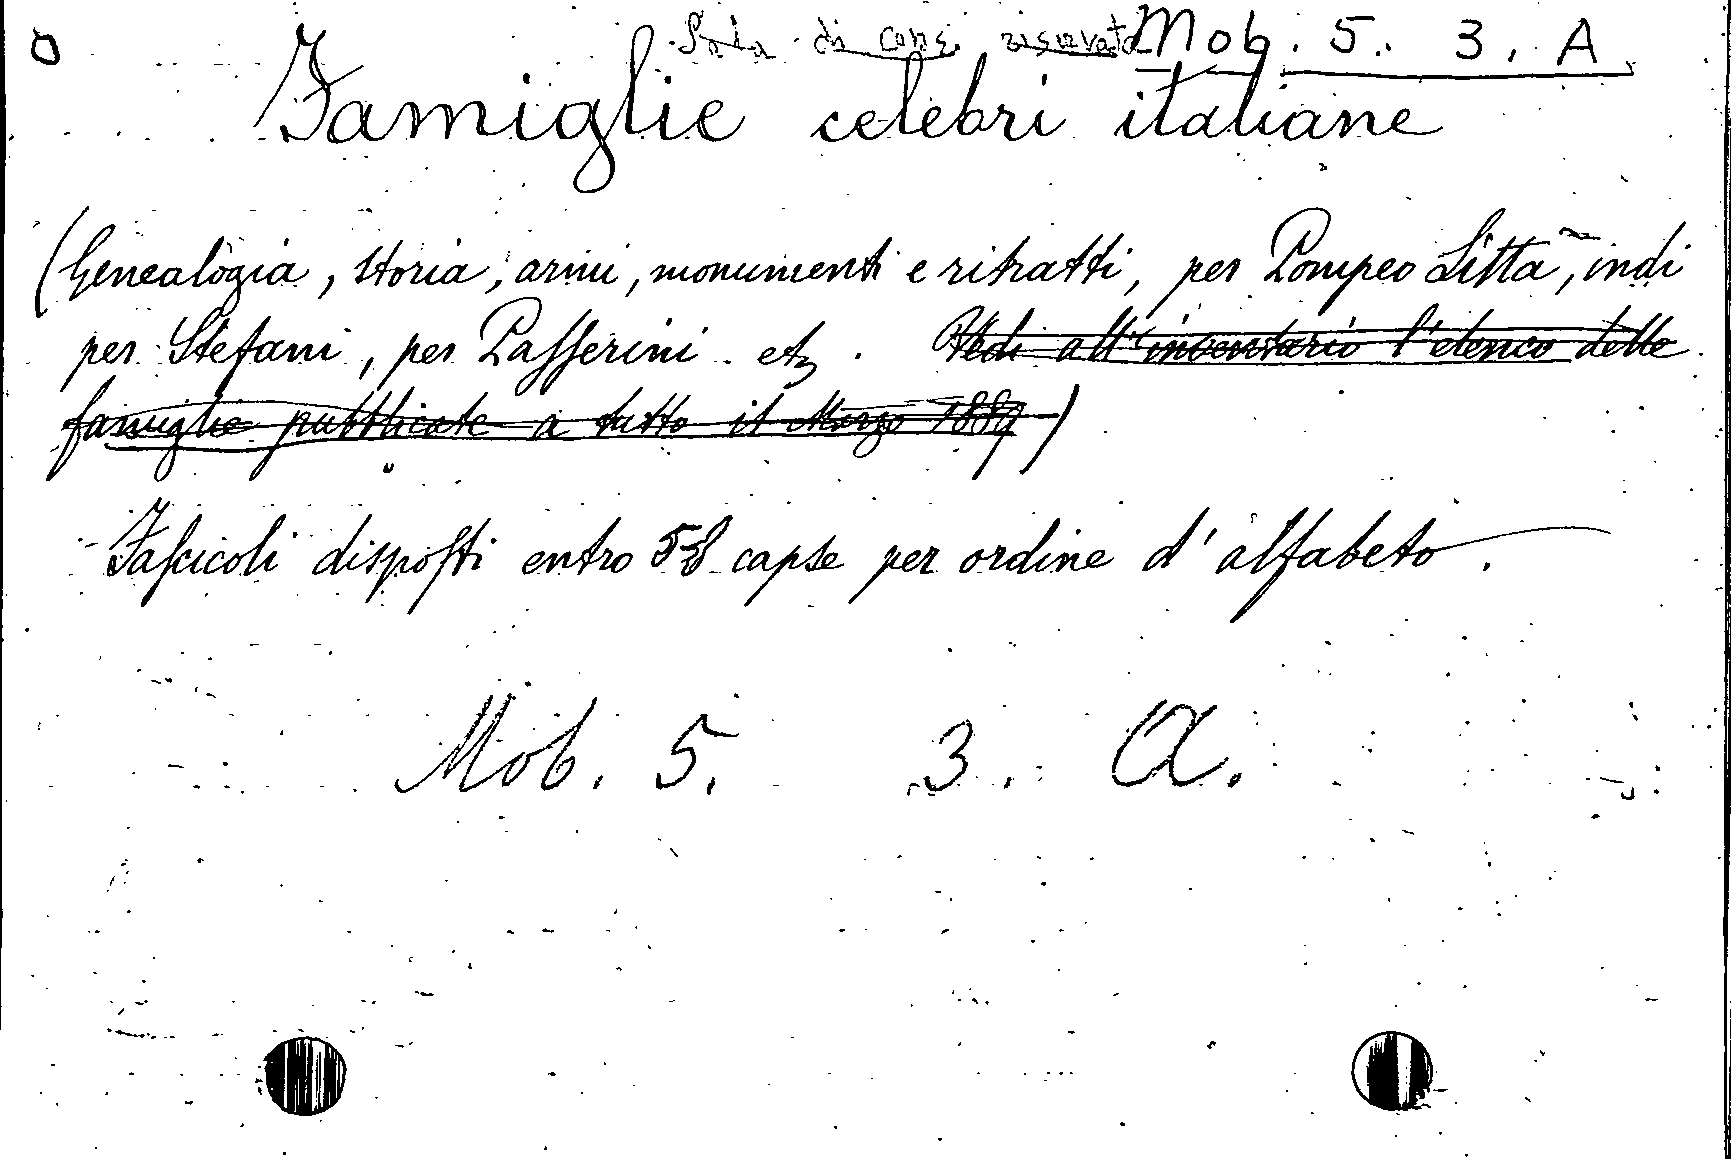 Sala di cons. riservata Mob. 5. 3. A
Famiglie celebri italiane
(Genealogia, storia, armi, monumenti e ritratti, per Pompeo Litta, indi
per Stefani, per Passerini etz. Vedi all'inventario l'elenco delle
famiglie pubblicate a tutto il Marzo 1889)
Fascicoli disposti entro 58 capse per ordine d'alfabeto.
Mob. 5. 3. A.